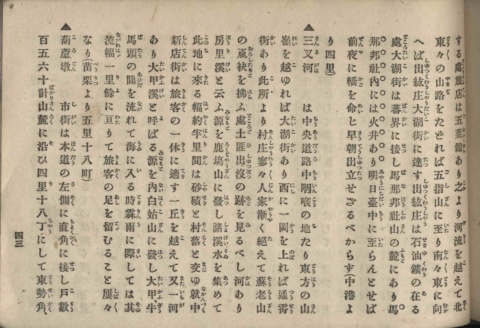 する處旅店は五六軒あり之より河流を越えて北
東々の山路をたどれば五指山に至り南々東に向
へば出絋庄大湖街に達す出絋庄は石油鑛の在る
處大湖街は蕃界に接し馬那邦社山の麓にあり馬
那邦社内には火井あり明日臺中に至らんとせば
前夜に轎を命し早朝出立せざるべからず(中港よ
り四里)
▲三叉河 は中央道路中咽喉の地たり東方の山
崙を越ゆれば大湖街あり西に一岡を上れば通霄
街あり此所より村庄寥々人家漸く絶えて蘇老山
の嵐袂を拂ふ處土匪出沒の跡を見るべし河あり
房里溪と云ふ源を鹿塲山に發し諸溪水を集めて
此地に來る幅約半里間は砂磧と村落と交ゆ就中
新店街は旅客の一休に適す一丘を越えて又一河
あり大甲溪と呼ばる源を内白姑山に發し大甲牛
馬頭の間を流れて海に入る時霖雨に際しては其
流幅一里餘に亘りて旅客の足を留むること屡々
なり苗栗より五里十八町
▲葫蘆墩 市街は本道の左側に直角に接し戸數
百五六十計山麓に沿ひ四里十八丁にして東勢角
四三